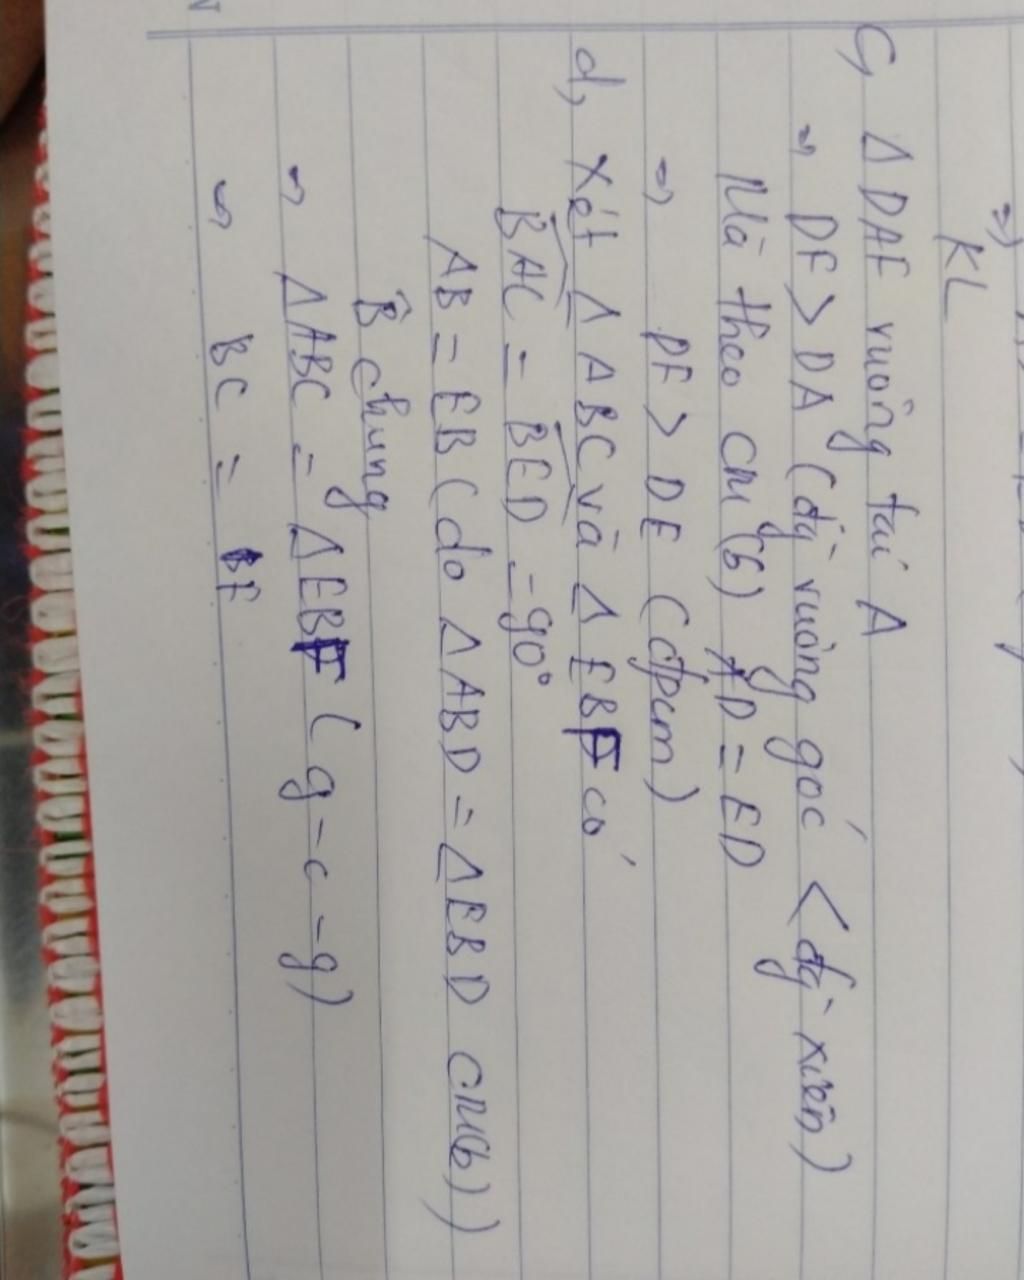 ⇒
KL
C, Δ DAF vuông tại A
⇒ DF > DA (đg vuông góc < đg xiên)
Mà theo cm (b) AD = ED
⇒ DF > DE (đpcm)
d, Xét Δ ABC và Δ EBF có
BAC = BED = 90°
AB = EB (do Δ ABD = Δ EBD cm(b))
B̂ chung
⇒ Δ ABC = Δ EBF (g-c-g)
⇒ BC = BF